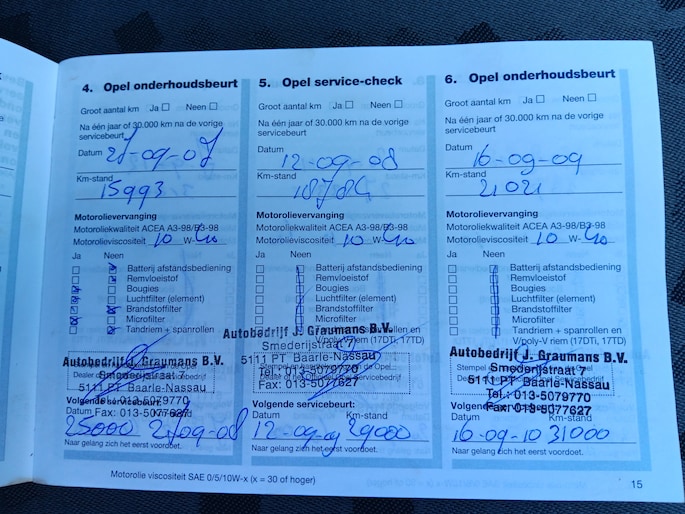 4. Opel onderhoudsbeurt
Groot aantal km Ja Neen
Na één jaar of 30.000 km na de vorige
servicebeurt
Datum 21-09-07
Km-stand
15993
Motorolievervanging
Motoroliekwaliteit ACEA A3-98/B3-98
Motorolieviscositeit 10 W-40
Ja Neen
Batterij afstandsbediening
Remvloeistof
Bougies
Luchtfilter (element)
Brandstoffilter
Microfilter
Tandriem + spanrollen
Autobedrijf J. Graumans B.V.
Smederijstraat 7
5111 PT Baarle-Nassau
Tel.: 013-5079770
Fax: 013-5077627
Volgende servicebeurt:
Datum
25000 21-09-08
Naar gelang zich het eerst voordoet.
5. Opel service-check
Groot aantal km Ja Neen
Na één jaar of 30.000 km na de vorige
servicebeurt
Datum
12-09-08
Km-stand
18784
Motorolievervanging
Motoroliekwaliteit ACEA A3-98/B3-98
Motorolieviscositeit 10 W-40
Ja Neen
Batterij afstandsbediening
Remvloeistof
Bougies
Luchtfilter (element)
Brandstoffilter
Microfilter
Tandriem + spanrollen en
V/poly-V riem (17DTi, 17TD)
Autobedrijf J. Graumans B.V.
Smederijstraat 7
5111 PT Baarle-Nassau
Tel.: 013-5079770
Fax: 013-5077627
Volgende servicebeurt:
Datum Km-stand
12-09-09 29000
Naar gelang zich het eerst voordoet.
6. Opel onderhoudsbeurt
Groot aantal km Ja Neen
Na één jaar of 30.000 km na de vorige
servicebeurt
Datum
16-09-09
Km-stand
21021
Motorolievervanging
Motoroliekwaliteit ACEA A3-98/B3-98
Motorolieviscositeit 10 W-40
Ja Neen
Batterij afstandsbediening
Remvloeistof
Bougies
Luchtfilter (element)
Brandstoffilter
Microfilter
Tandriem + spanrollen en
V/poly-V riem (17DTi, 17TD)
Autobedrijf J. Graumans B.V.
Smederijstraat 7
5111 PT Baarle-Nassau
Tel.: 013-5079770
Fax: 013-5077627
Datum Km-stand
16-09-10 31000
Naar gelang zich het eerst voordoet.
Motorolie viscositeit SAE 0/5/10W-x (x = 30 of hoger)
15